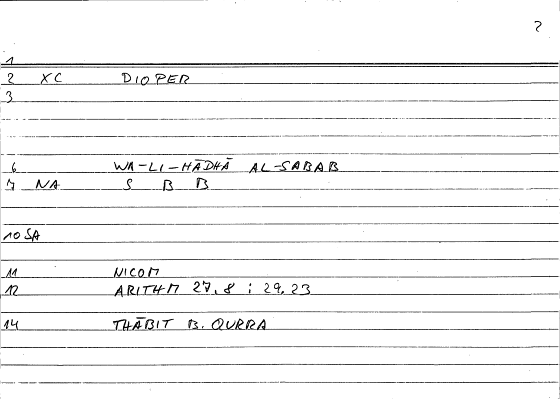 2
1
2 XC DIOPER
3
6 WA-LI-HĀDHĀ AL-SABAB
7 NA S B B
10 SA
11 NICOM
12 ARITHM 27.8 ; 29.23
14 THĀBIT B. QURRA